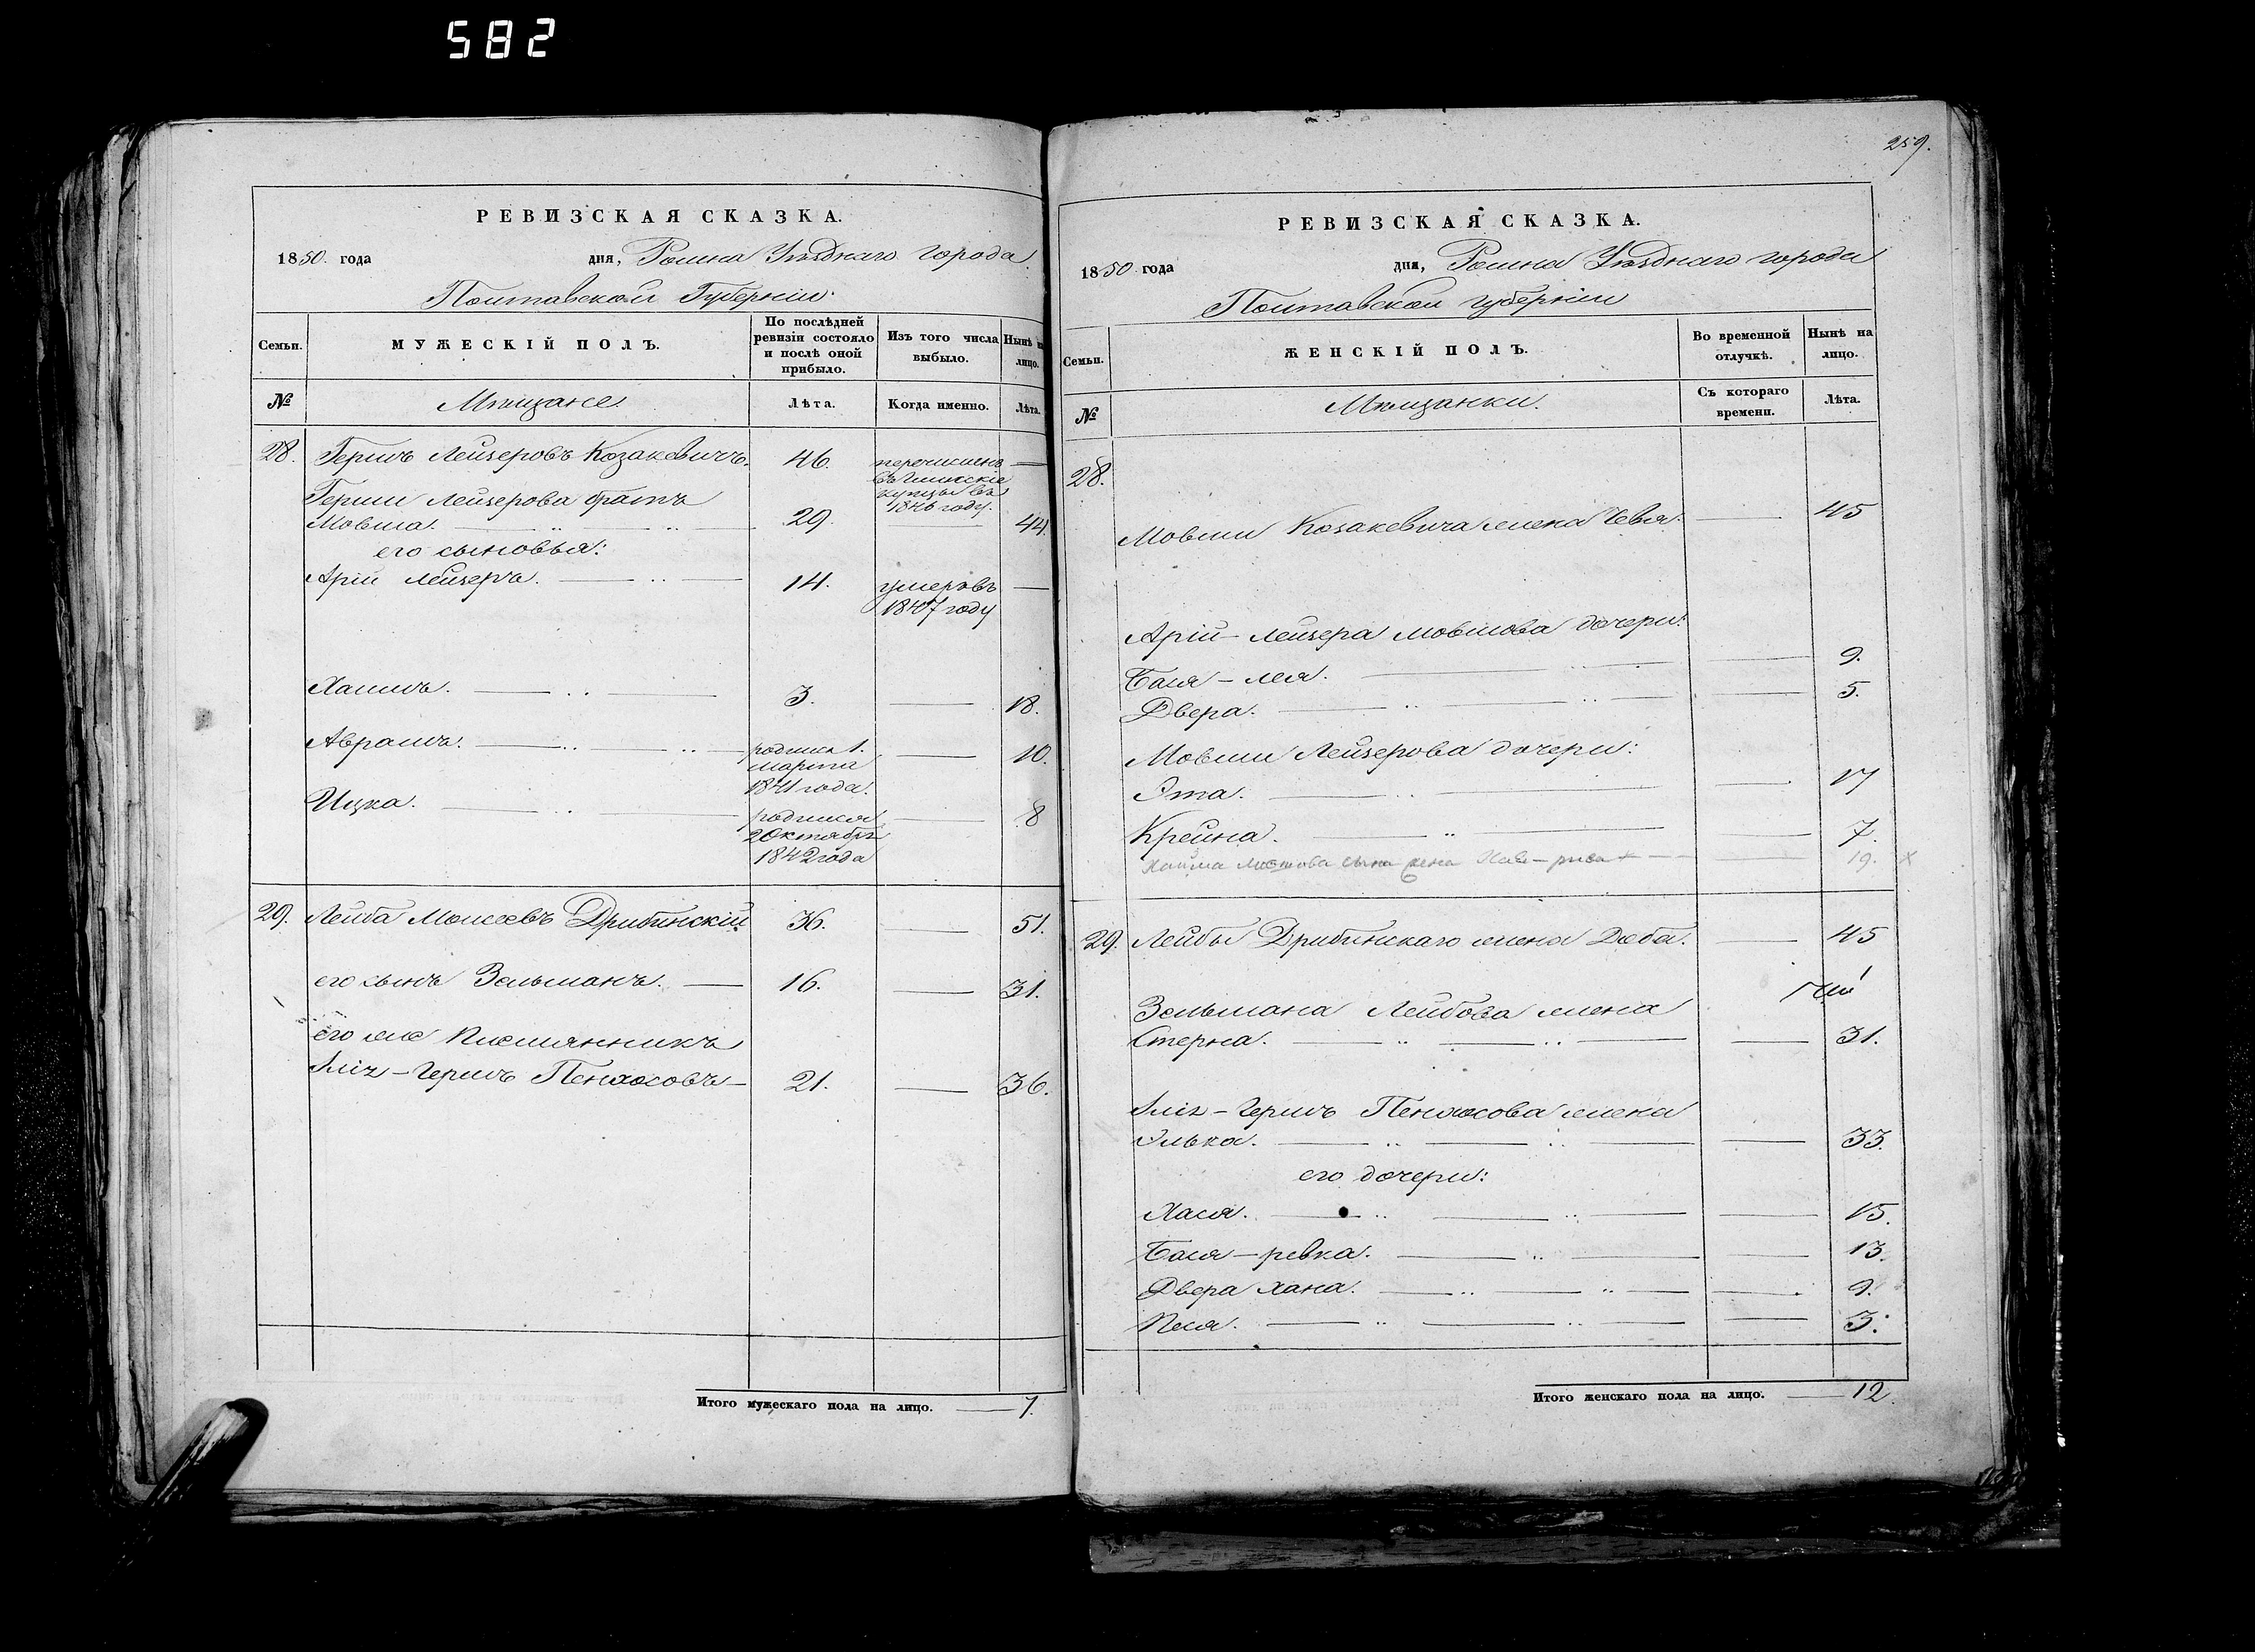 582
РЕВИЗСКАЯ СКАЗКА.
1850 года дня, Ромна Уѣзднаго города
Полтавской Губерніи.
Семьи.
МУЖЕСКІЙ ПОЛЪ.
По послѣдней ревизіи состояло и послѣ оной прибыло.
Изъ того числа выбыло.
Нынѣ на лицо.
№
Мѣщане.
Лѣта.
Когда именно.
Лѣта.
28. Гершъ Лейзеровъ Козакевичъ. 46. перечисленъ
въ
купцы въ
1846 году.
Герши Лейзерова братъ
Мовша. 29. 44.
его сыновья:
Арій Лейзеръ. 14. умеръ въ
1847 году
Хаимъ. 3. 18.
Аврамъ. родился 1. 10.
марта
1841 года.
Ицка. родился 8
2 Октября
1842 года
29. Лейба Моисеевъ Дрибинскій 36. 51.
его сынъ Зельманъ. 16. 31.
его же племянникъ
Гершъ Пенхосовъ 21. 36.
Итого мужескаго пола на лицо. 7.
259.
РЕВИЗСКАЯ СКАЗКА.
1850 года дня, Ромна Уѣзднаго города
Полтавской губерніи
Семьи.
ЖЕНСКІЙ ПОЛЪ.
Во временной отлучкѣ.
Нынѣ на лицо.
№
Мѣщанки.
Съ котораго времени.
Лѣта.
28.
Мовши Козакевича жена 45
Арій-Лейзера Мовшова дочери:
Бася-лея. 9.
Двера. 5.
Мовши Лейзерова дочери:
Эта. 17
Крейна. 7.
Хайма Мовшова сына жена 19. x
29. Лейбы Дрибинскаго жена Доба. 45
Зельмана Лейбова жена
Стерна. 31.
Гершъ Пенхосова жена
Элька. 33.
его дочери:
Хася. 15.
Бася-ревка. 13.
Двера хана. 9.
Песя. 3.
Итого женскаго пола на лицо. 12.